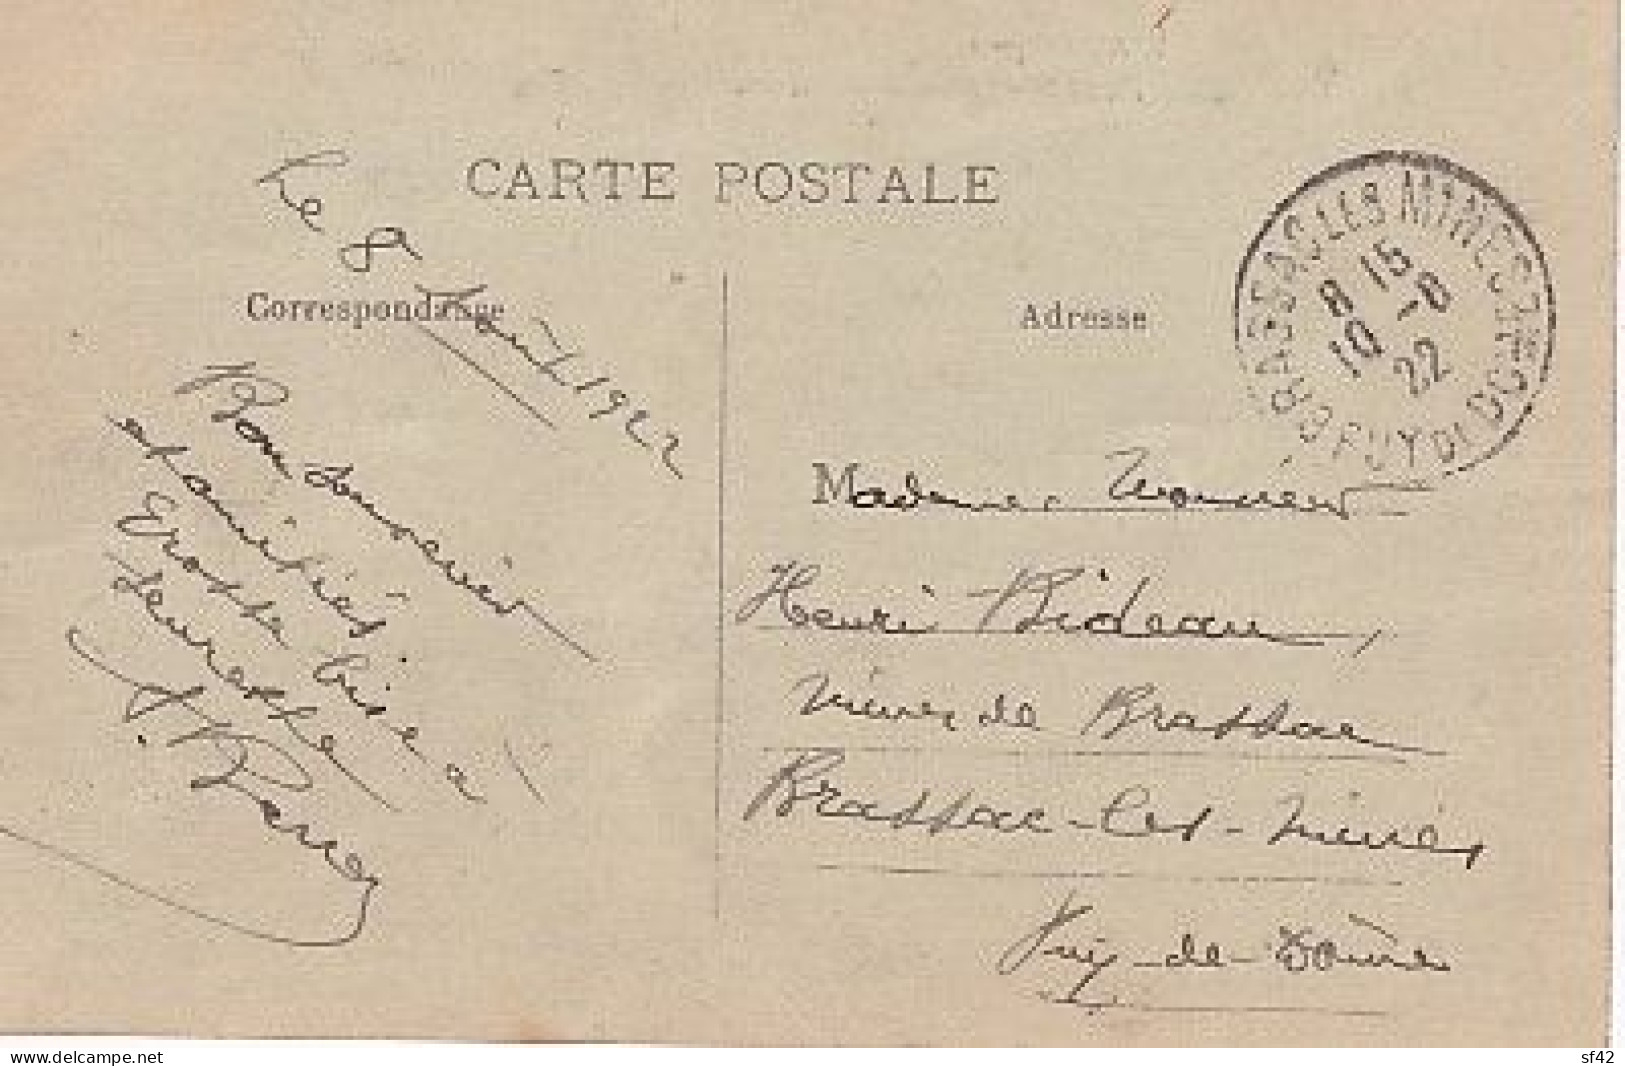 CARTE POSTALE
Correspondance
Adresse
Le 8 Août 1922
Bon souvenir
et amitiés
Grosse bise à
BRASSAC LES MINES
PUY DE DOME
8 15
10 -8
22
Madame Monsieur
Henri Bideau,
Mines de Brassac
Brassac-les-Mines
Puy-de-Dôme
www.delcampe.net
sf42